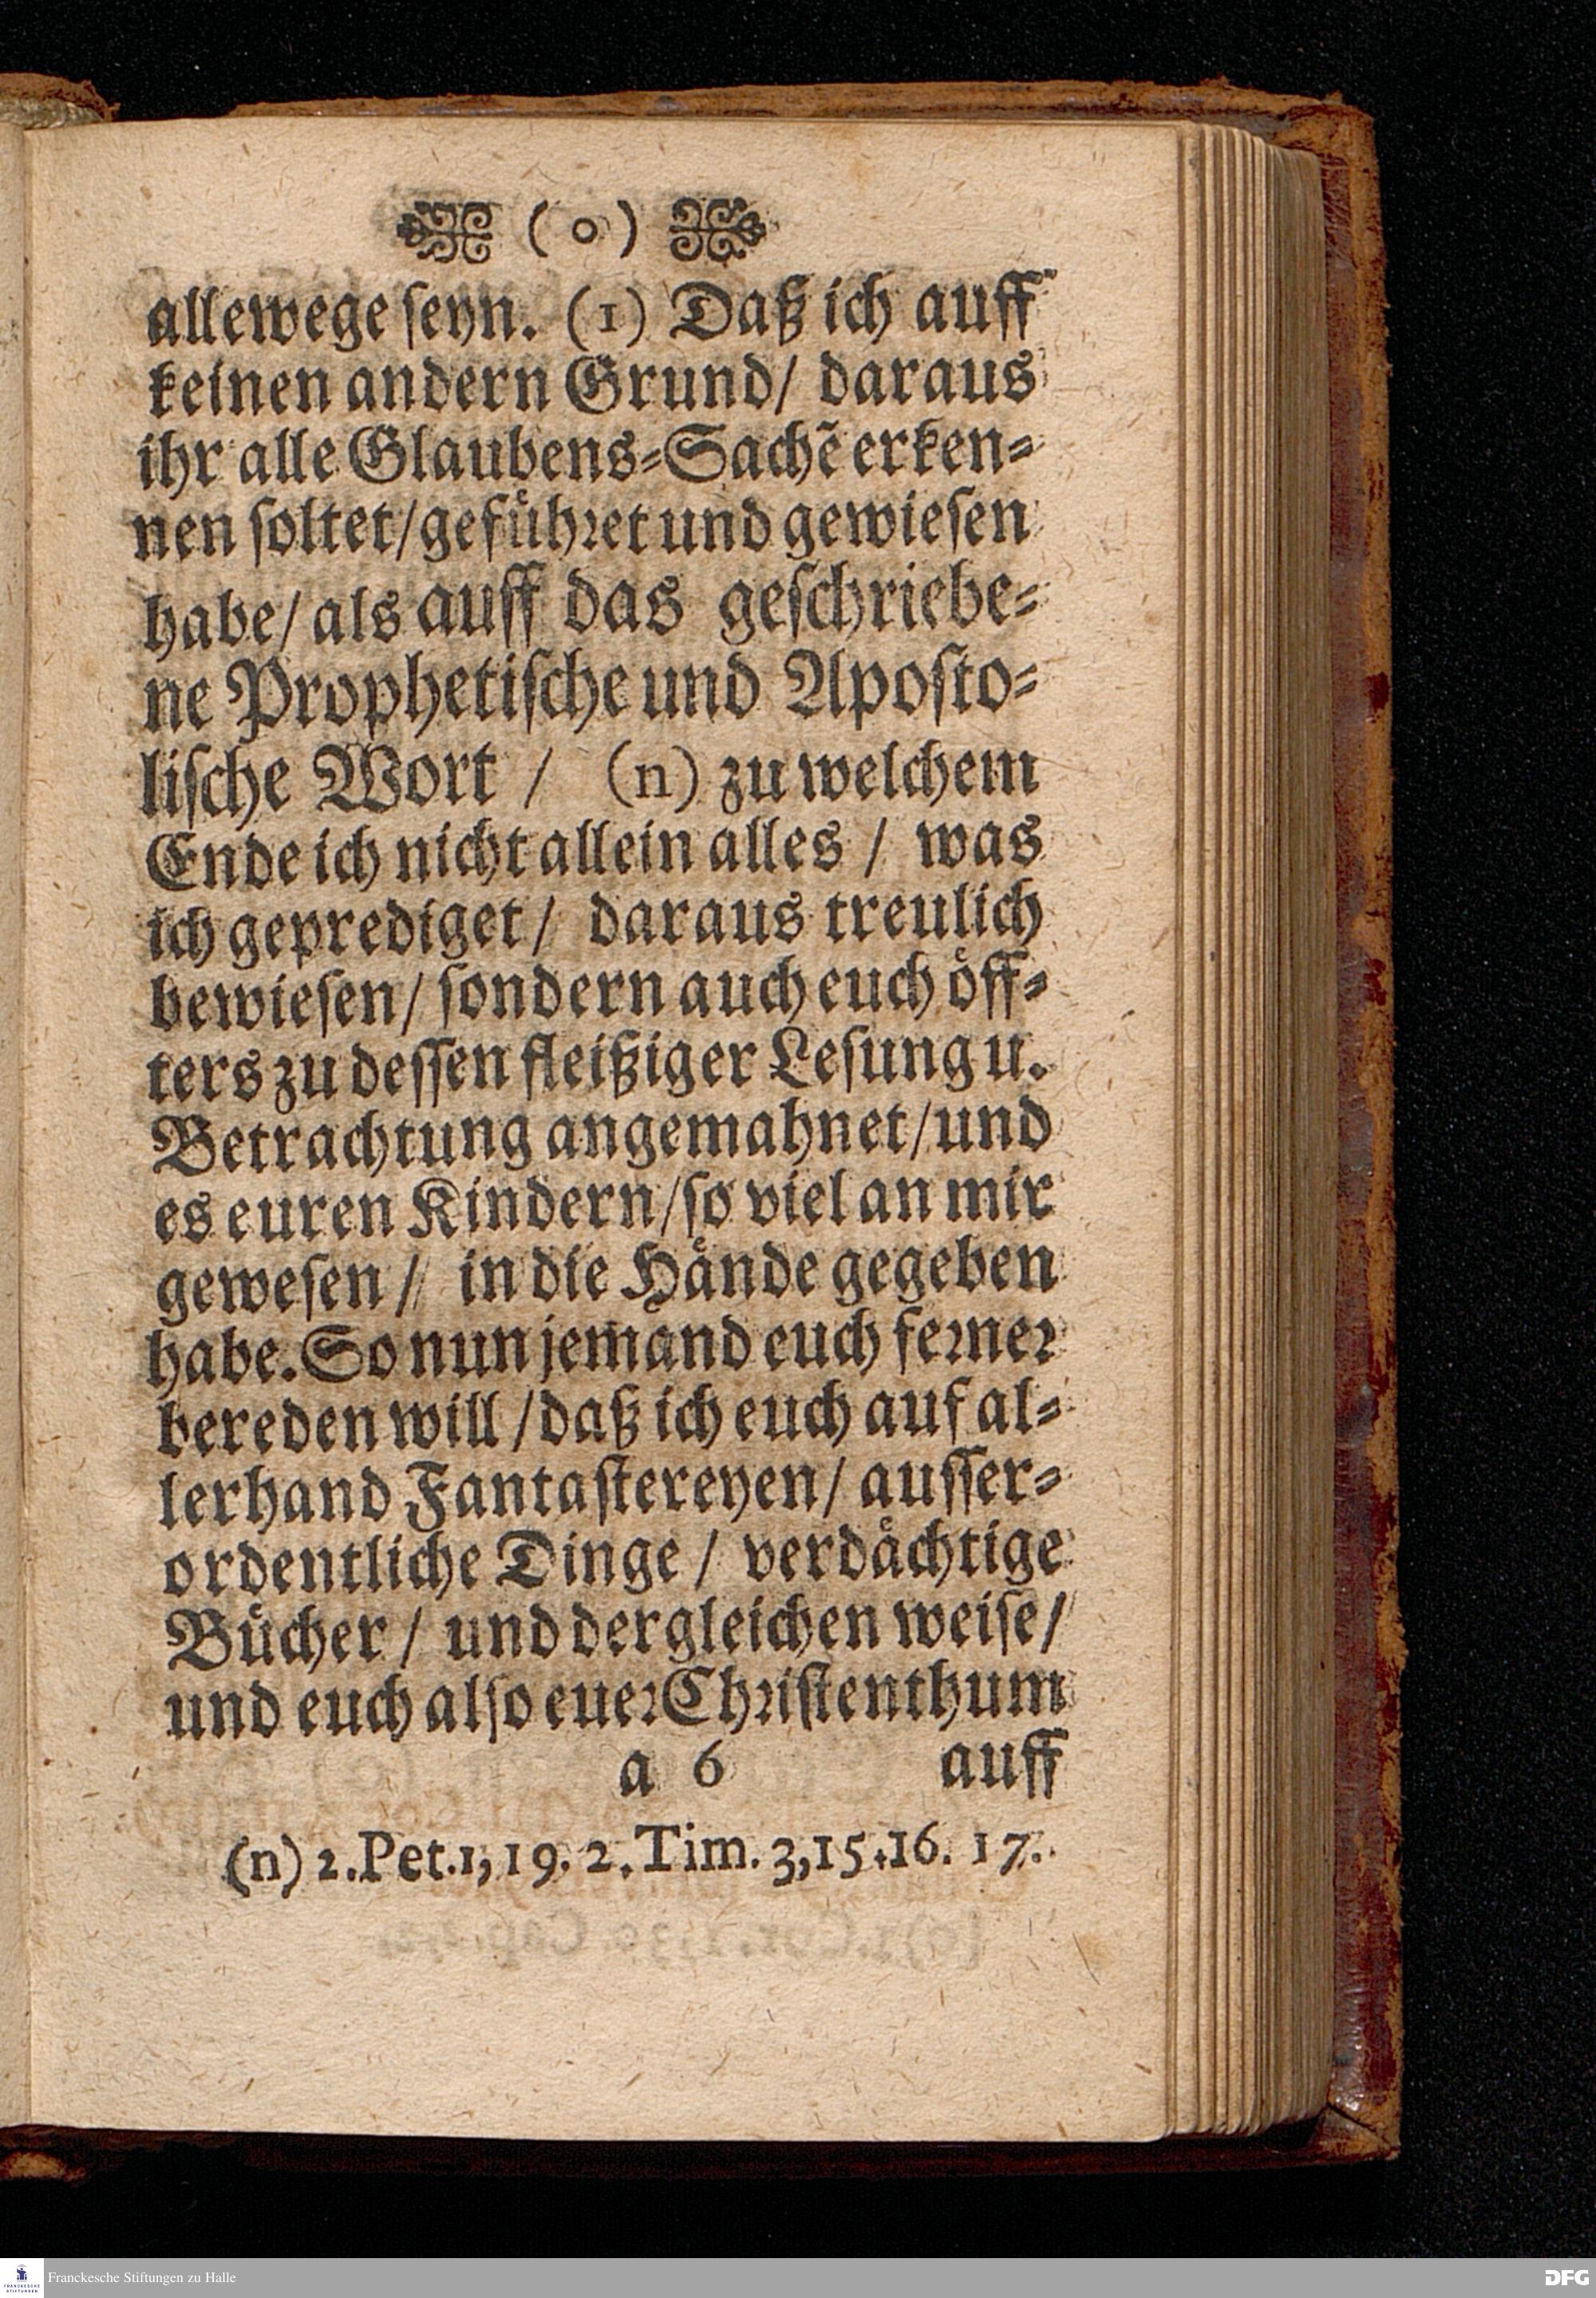 ( o )
allewege seyn. (1) Daß ich auff
keinen andern Grund/ daraus
ihr alle Glaubens-Sachẽ erken-
nen soltet/geführet und gewiesen
habe/ als auff das geschriebe-
ne Prophetische und Aposto-
lische Wort / (n) zu welchem
Ende ich nicht allein alles / was
ich geprediget/ daraus treulich
bewiesen/ sondern auch euch öff-
ters zu dessen fleißiger Lesung u.
Betrachtung angemahnet/und
es euren Kindern/so viel an mir
gewesen // in die Hände gegeben
habe. So nun jem̃and euch ferner
bereden will /daß ich euch auf al-
lerhand Fantastereyen/ ausser-
ordentliche Dinge / verdächtige
Bücher / und dergleichen weise/
und euch also euer Christenthum
a 6 auff
(n) 2.Pet.1,19. 2.Tim. 3,15.16. 17.
Franckesche Stiftungen zu Halle
DFG